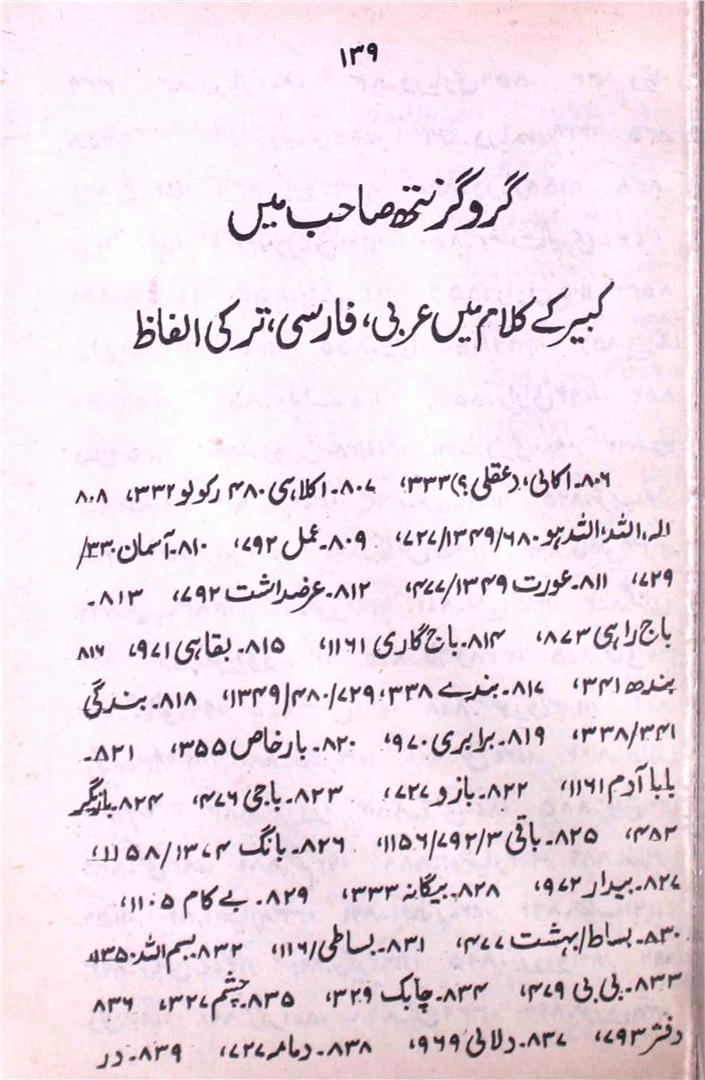 ۱۳۹
گرو گرنتھ صاحب میں
کبیر کے کلام میں عربی، فارسی، ترکی الفاظ
۸۰۶۔ اکائی، (عقلی؟) ۳۳۳، ۸۰۷۔ اکلاہی ۴۸۰ رکولو ۳۳۲، ۸۰۸
الہ، اللہ، اللہ ہو ۶۸۰/۱۳۴۹/۷۲۷، ۸۰۹۔ عمل ۷۹۲، ۸۱۰۔ آسمان ۳۳۰/
۷۲۹، ۸۱۱۔ عورت ۱۳۴۹/۴۷۷، ۸۱۲۔ عرضداشت ۷۹۲، ۸۱۳۔
باج راہی ۸۷۳، ۸۱۴۔ باج گاری ۱۱۶۱، ۸۱۵۔ بقاہی ۹۷۱، ۸۱۶
بندھ ۳۴۱، ۸۱۷۔ بندے ۳۳۸، ۷۲۹/۴۸۰/۱۳۴۹، ۸۱۸۔ بندگی
۳۳۸/۳۴۱، ۸۱۹۔ برابری ۹۷۰، ۸۲۰۔ بارخاص ۳۵۵، ۸۲۱۔
بابا آدم ۱۱۶۱، ۸۲۲۔ بازو ۷۲۷، ۸۲۳۔ باجی ۴۷۶، ۸۲۴۔ بازیگر
۴۸۲، ۸۲۵۔ باتی ۷۹۲/۳/۱۱۵۶، ۸۲۶۔ بانگ ۱۳۷۴/۱۱۵۸،
۸۲۷۔ بیدار ۹۷۲، ۸۲۸۔ بیگانہ ۳۳۳، ۸۲۹۔ بے کام ۱۱۰۵،
۸۳۰۔ بساط/بہشت ۴۷۷، ۸۳۱۔ بساطی/۱۱۶، ۸۳۲۔ بسم اللہ
۸۳۳۔ بی بی ۴۷۹، ۸۳۴۔ چابک ۳۲۹، ۸۳۵۔ چشم ۳۲۷، ۸۳۶
دفتر ۷۹۳، ۸۳۷۔ دلالی ۹۶۹، ۸۳۸۔ دمامہ ۲۲۷، ۸۳۹۔ در